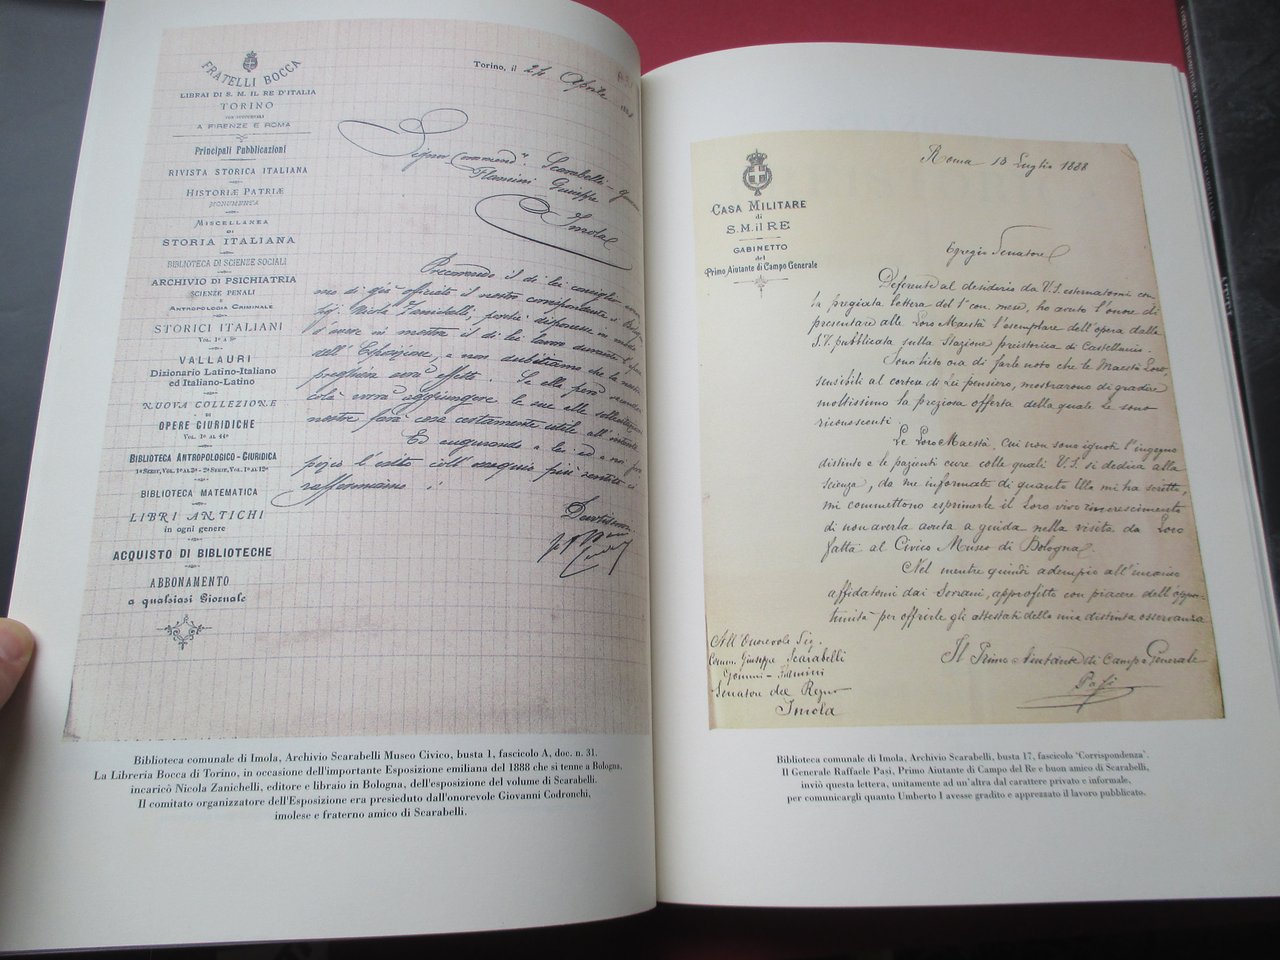 FRATELLI BOCCA
LIBRAI DI S. M. IL RE D'ITALIA
TORINO
CON SUCCURSALI
A FIRENZE E ROMA
Principali Pubblicazioni
RIVISTA STORICA ITALIANA
HISTORIÆ PATRIÆ
MONUMENTA
MISCELLANEA
DI
STORIA ITALIANA
BIBLIOTECA DI SCIENZE SOCIALI
ARCHIVIO DI PSICHIATRIA
SCIENZE PENALI
E
ANTROPOLOGIA CRIMINALE
STORICI ITALIANI
VOL. 1° A 5°
VALLAURI
Dizionario Latino-Italiano
ed Italiano-Latino
NUOVA COLLEZIONE
DI
OPERE GIURIDICHE
VOL. 1° AL 44°
BIBLIOTECA ANTROPOLOGICO-GIURIDICA
1ª SERIE, VOL. 1° AL 3° - 2ª SERIE, VOL. 1° AL 12°
BIBLIOTECA MATEMATICA
LIBRI ANTICHI
in ogni genere
ACQUISTO DI BIBLIOTECHE
ABBONAMENTO
a qualsiasi Giornale
Torino, il 24 Aprile
Signor Commend. Scarabelli-
Flamini Giuseppe
Imola
Preveniendo il di lei consiglio
mo di già officiato il nostro corrispondente
Sig. Nicola Zanichelli, perchè disponesse in modo
d'avere in mostra il di lei lavoro durante
dell'Esposizione, e non dubitiamo che la nostra
preghiera avrà effetto. Se ella però
colà vorrà aggiungere le sue alle sollecitazioni
nostre farà cosa certamente utile all'
Ed augurando a lei ed a noi
l'esito coll'ossequio più sentito ci
raffermiamo
Devotissimi
Biblioteca comunale di Imola, Archivio Scarabelli Museo Civico, busta 1, fascicolo A, doc. n. 31.
La Libreria Bocca di Torino, in occasione dell'importante Esposizione emiliana del 1888 che si tenne a Bologna,
incaricò Nicola Zanichelli, editore e libraio in Bologna, dell'esposizione del volume di Scarabelli.
Il comitato organizzatore dell'Esposizione era presieduto dall'onorevole Giovanni Codronchi,
imolese e fraterno amico di Scarabelli.
CASA MILITARE
di
S.M. il RE
GABINETTO
del
Primo Aiutante di Campo Generale
Roma 13 Luglio 1888
Egregio Senatore
Deferente al desiderio da V.S. esternatomi con
la pregiata lettera del 1° con. mese, ho avuto l'onore di
presentare alle Loro Maestà l'esemplare dell'opera dalla
S.V. pubblicata sulla Stazione preistorica di Castellaccio.
Sono lieto ora di farle noto che le Maestà Loro,
sensibili al cortese di Lei pensiero, mostrarono di gradire
moltissimo la preziosa offerta della quale Le sono
riconoscenti.
Le Loro Maestà, cui non sono ignoti l'ingegno
distinto e le pazienti cure colle quali V.S. si dedica alla
scienza, da me informate di quanto Ella mi ha scritto,
mi commettono esprimerle il Loro vivo rincrescimento
di non averla avuta a guida nella visita da Loro
fatta al Civico Museo di Bologna.
Nel mentre quindi adempio all'incarico
affidatomi dai Sovrani, approfitto con piacere dell'oppor-
tunità per offrirle gli attestati della mia distinta osservanza
Il Primo Aiutante di Campo Generale
Pasi
All'Onorevole Sig.
Comm. Giuseppe Scarabelli
Gommi-Flamini
Senatore del Regno
Imola
Biblioteca comunale di Imola, Archivio Scarabelli, busta 17, fascicolo 'Corrispondenza'.
Il Generale Raffaele Pasi, Primo Aiutante di Campo del Re e buon amico di Scarabelli,
inviò questa lettera, unitamente ad un'altra dal carattere privato e informale,
per comunicargli quanto Umberto I avesse gradito e apprezzato il lavoro pubblicato.